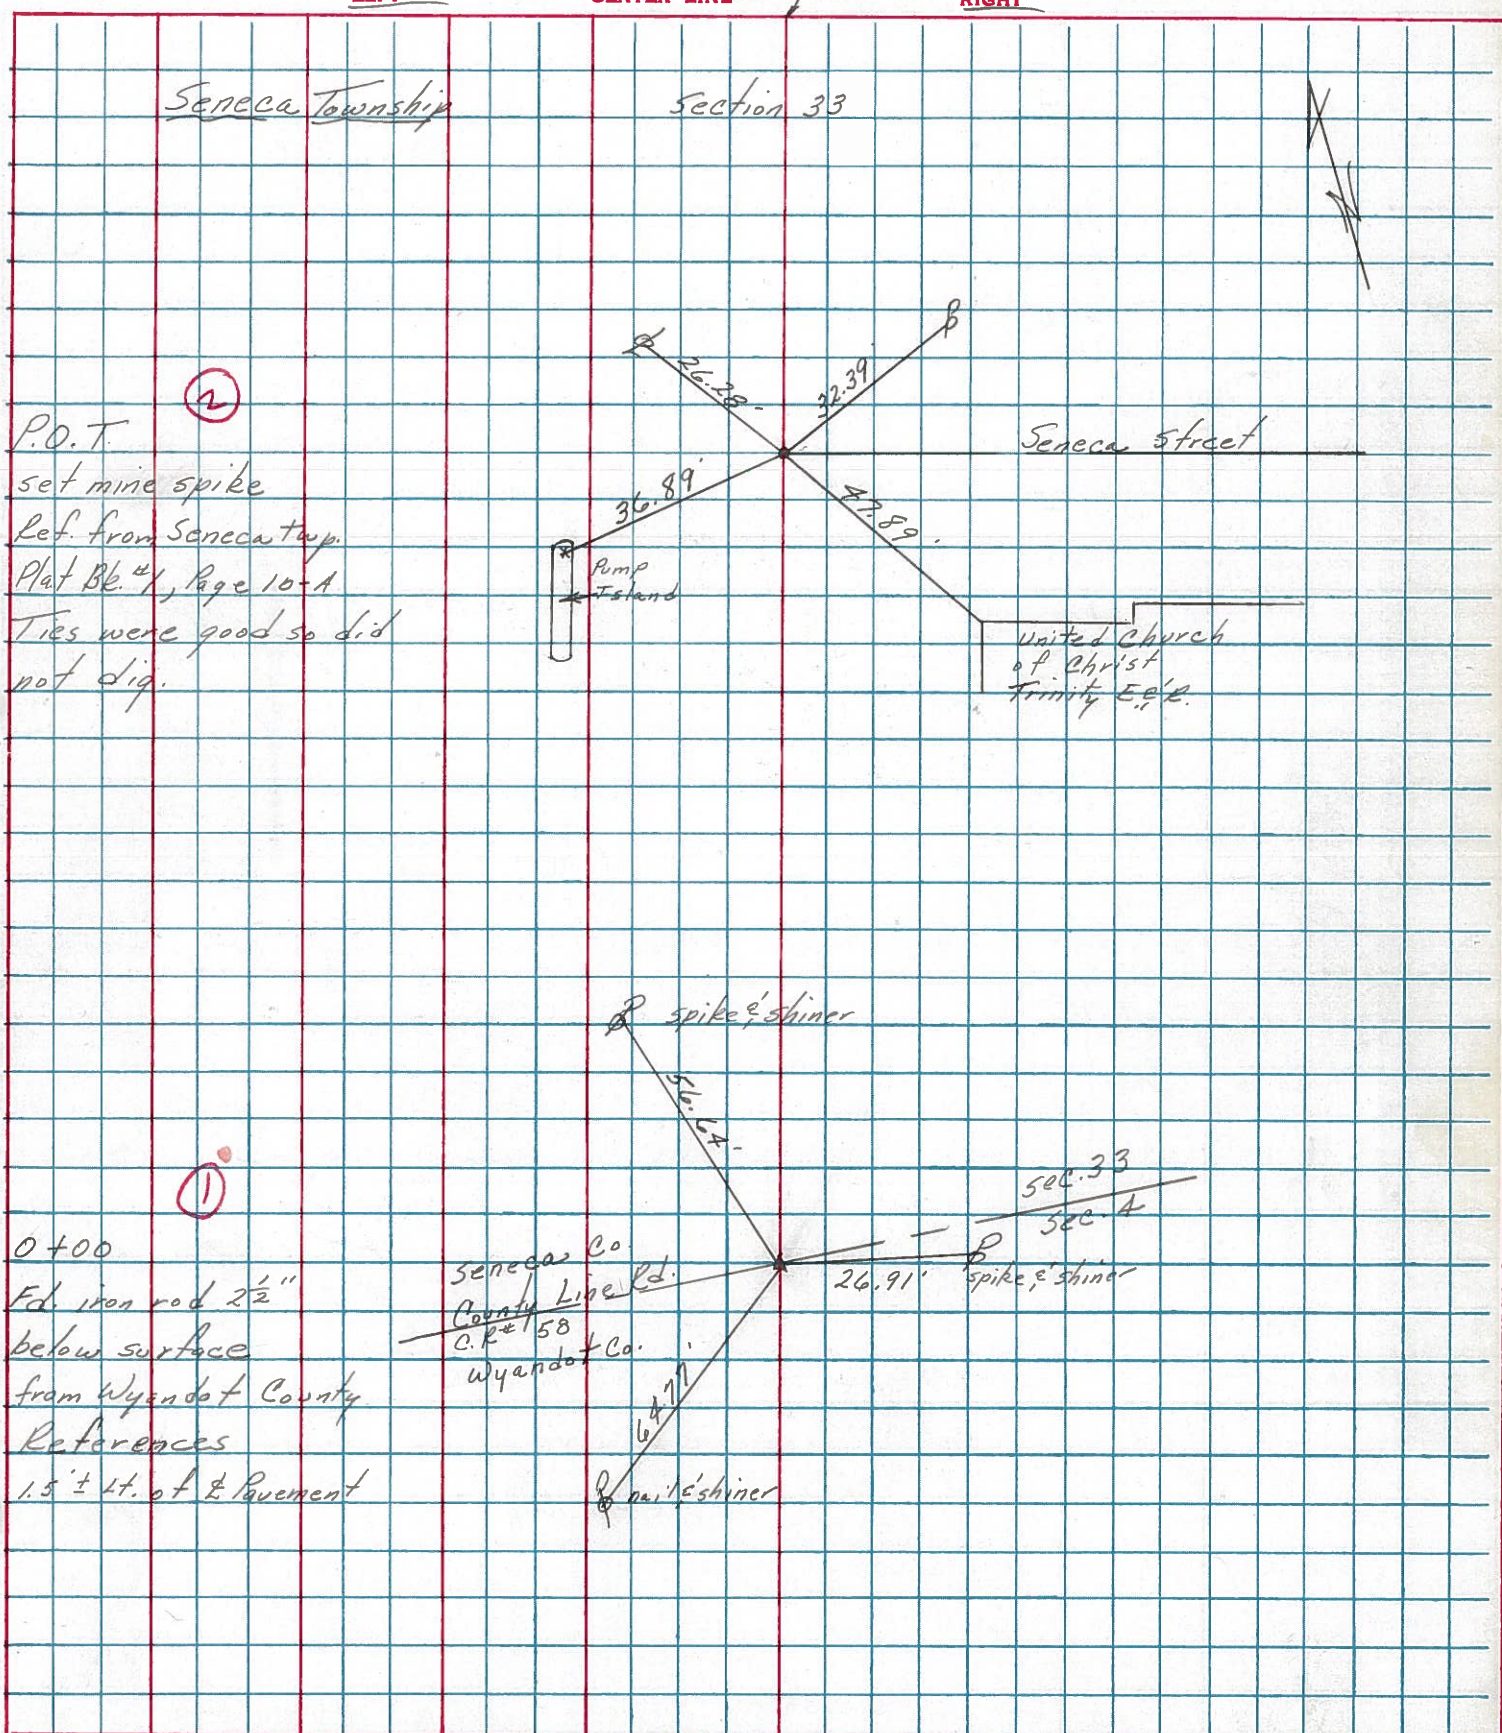 LEFT CENTER LINE RIGHT
Seneca Township Section 33
2
P.O.T.
set mine spike
Ref. from Seneca twp.
Plat Bk. #1, Page 10-A
Ties were good so did
not dig.
26.28'
32.39'
Seneca Street
36.89'
47.89'
Pump
Island
United Church
of Christ
Trinity E. & R.
spike & shiner
56.64'
1
0+00
Fd. iron rod 2½"
below surface
from Wyandot County
References
1.5'± Lt. of ℄ Pavement
Sec. 33
Sec. 4
Seneca Co.
County Line Rd.
C.R.# 58
Wyandot Co.
26.91'
spike & shiner
64.77'
nail & shiner